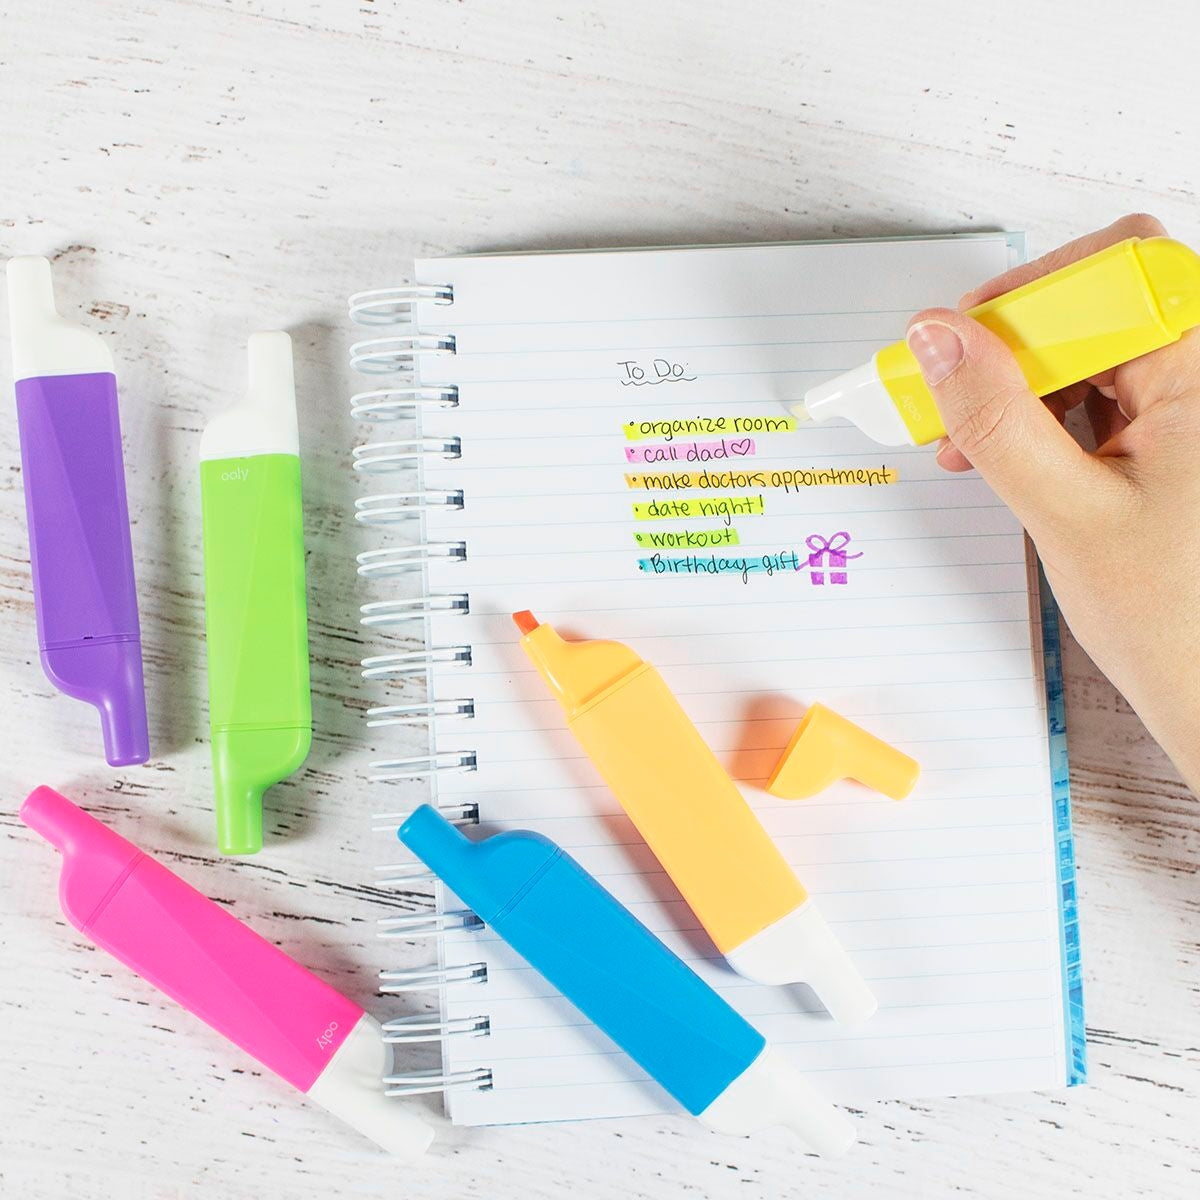 To Do:
• organize room
• call dad♡
• make doctors appointment
• date night!
• workout
• Birthday gift
ooly
ooly
ooly